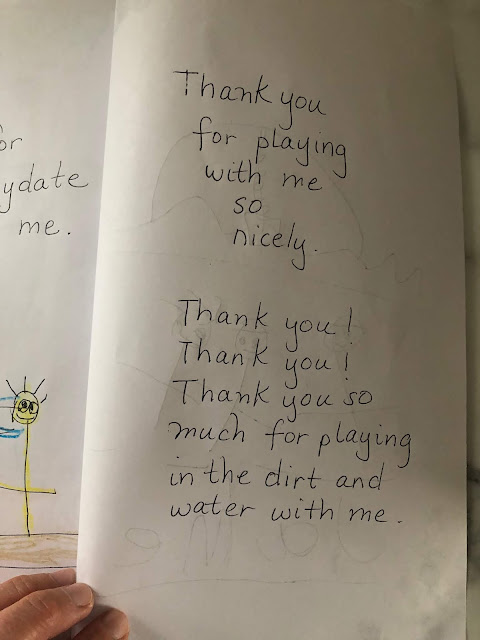 or
ydate
me.
Thank you
for playing
with me
so
nicely.
Thank you!
Thank you!
Thank you so
much for playing
in the dirt and
water with me.